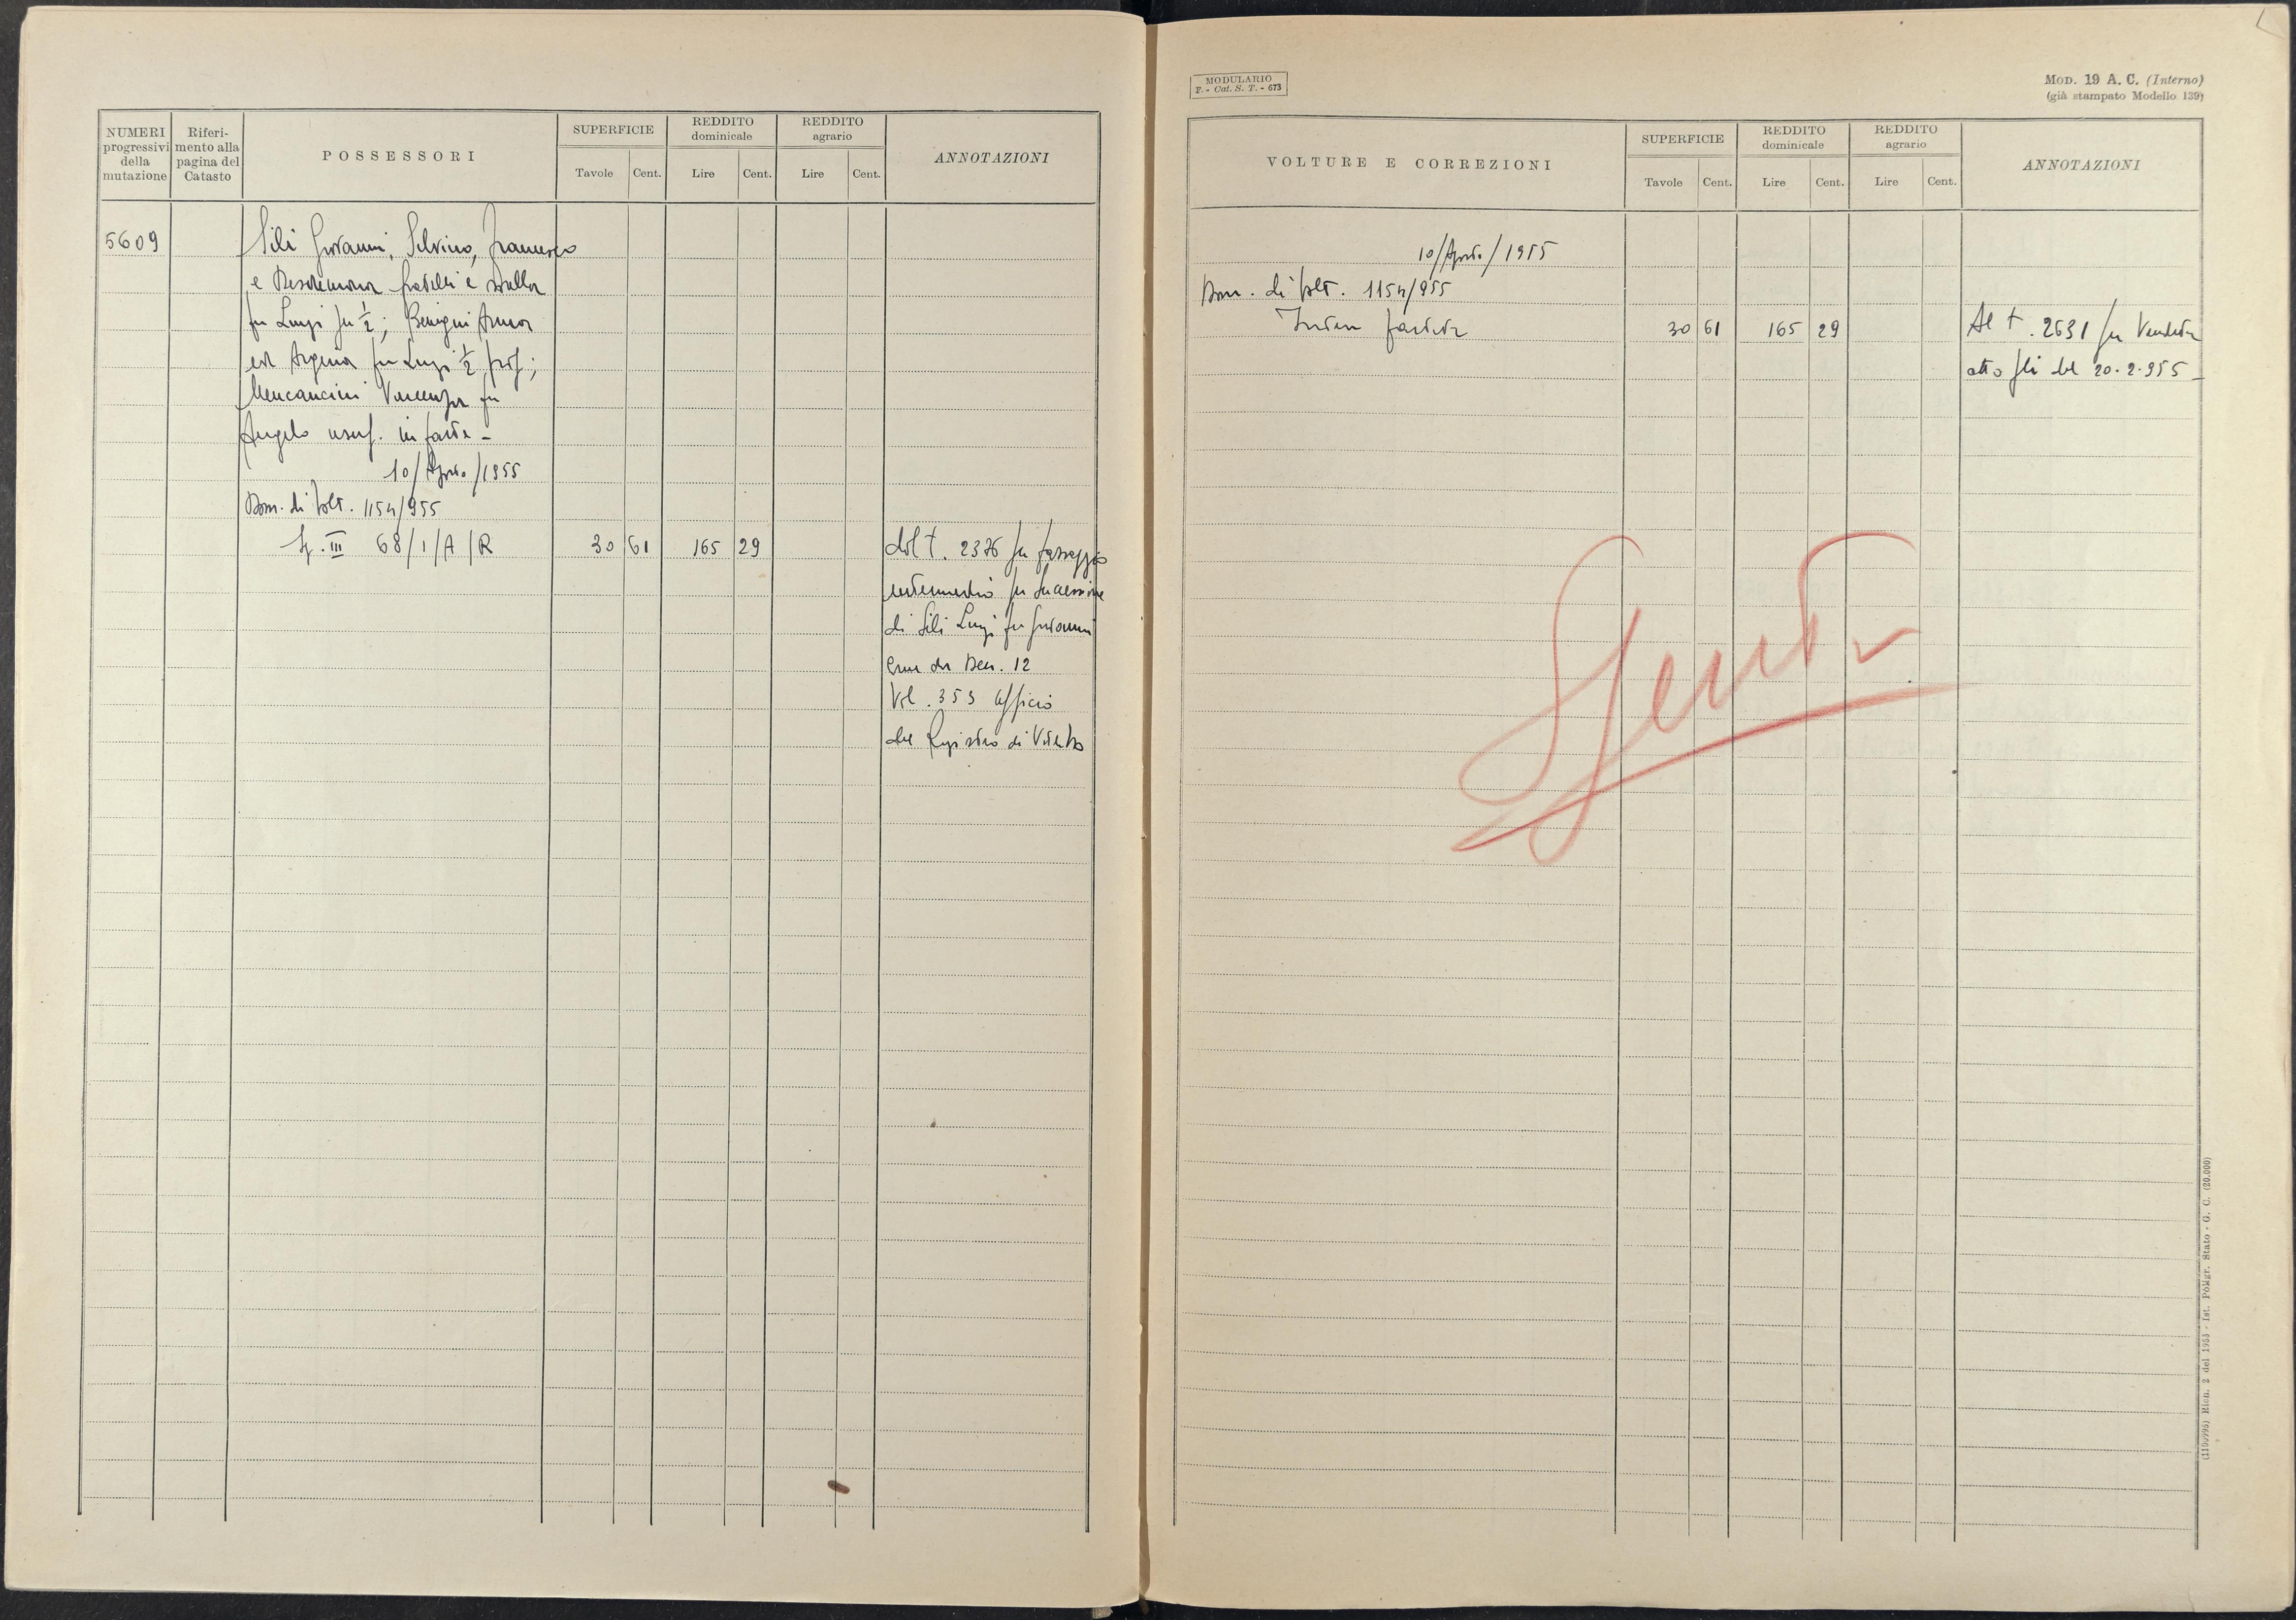 NUMERI
progressivi
della
mutazione
Riferi-
mento alla
pagina del
Catasto
POSSESSORI
SUPERFICIE
Tavole Cent.
REDDITO
dominicale
Lire Cent.
REDDITO
agrario
Lire Cent.
ANNOTAZIONI
5609
Sili Giovanni, Silvino, Francesco
e Desdemona fratelli e sorella
fu Luigi per ½; Benigni Anna
ed Argena fu Luigi ½ prop;
Mencancini Vincenza fu
Angelo usuf. in parte -
10/Agosto/1955
Dom. di Volt. 1154/955
Sez. III 68/1/A/R 30 61 165 29
dal t. 2376 per passaggio
intermedio per successione
di Sili Luigi fu Giovanni
come da Den. 12
Vol. 353 Ufficio
del Registro di Viterbo
MODULARIO
F. - Cat. S. T. - 673
MOD. 19 A. C. (Interno)
(già stampato Modello 139)
VOLTURE E CORREZIONI
SUPERFICIE
Tavole Cent.
REDDITO
dominicale
Lire Cent.
REDDITO
agrario
Lire Cent.
ANNOTAZIONI
10/Agosto/1955
Dom. di Volt. 1154/955
Intera partita 30 61 165 29
Al t. 2631 per Vendita
atto del 20-2-955 -
Spenta
(1100995) Rich. 2 del 1953 - Ist. Poligr. Stato - G. C. (20.000)